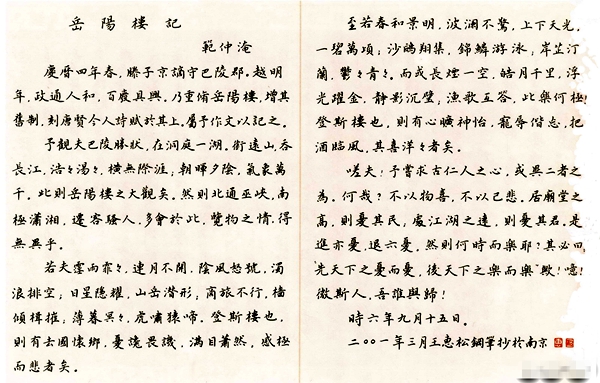 岳陽樓記
範仲淹
慶曆四年春，滕子京謫守巴陵郡。越明
年，政通人和，百廢具興。乃重脩岳陽樓，增其
舊制，刻唐賢今人詩賦於其上，屬予作文以記之。
予觀夫巴陵勝狀，在洞庭一湖。銜遠山，吞
長江，浩々湯々，橫無際涯；朝暉夕陰，氣象萬
千。此則岳陽樓之大觀矣。然則北通巫峽，南
極瀟湘，遷客騷人，多會於此，覽物之情，得
無異乎。
若夫霪雨霏々，連月不開，陰風怒號，濁
浪排空；日星隱耀，山岳潛形；商旅不行，檣
傾楫摧；薄暮冥々，虎嘯猿啼。登斯樓也，
則有去國懷鄉，憂讒畏譏，滿目蕭然，感極
而悲者矣。
至若春和景明，波瀾不驚，上下天光，
一碧萬頃；沙鷗翔集，錦鱗游泳；岸芷汀
蘭，鬱々青々。而或長煙一空，皓月千里，浮
光躍金，靜影沉璧；漁歌互答，此樂何極！
登斯樓也，則有心曠神怡，寵辱偕忘，把
酒臨風，其喜洋々者矣。
嗟夫！予嘗求古仁人之心，或異二者之
為。何哉？不以物喜，不以己悲。居廟堂之
高，則憂其民，處江湖之遠，則憂其君。是
進亦憂，退亦憂。然則何時而樂耶？其必曰
先天下之憂而憂，後天下之樂而樂歟！噫！
微斯人，吾誰與歸！
時六年九月十五日。
二〇〇一年三月王惠松鋼筆抄於南京